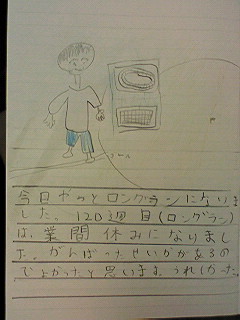 ゴール
今日やっとロングランになりま
した。120週目(ロングラン)
は、業間休みになりまし
た。がんばったせいかがあるの
でよかったと思います。うれしかった。